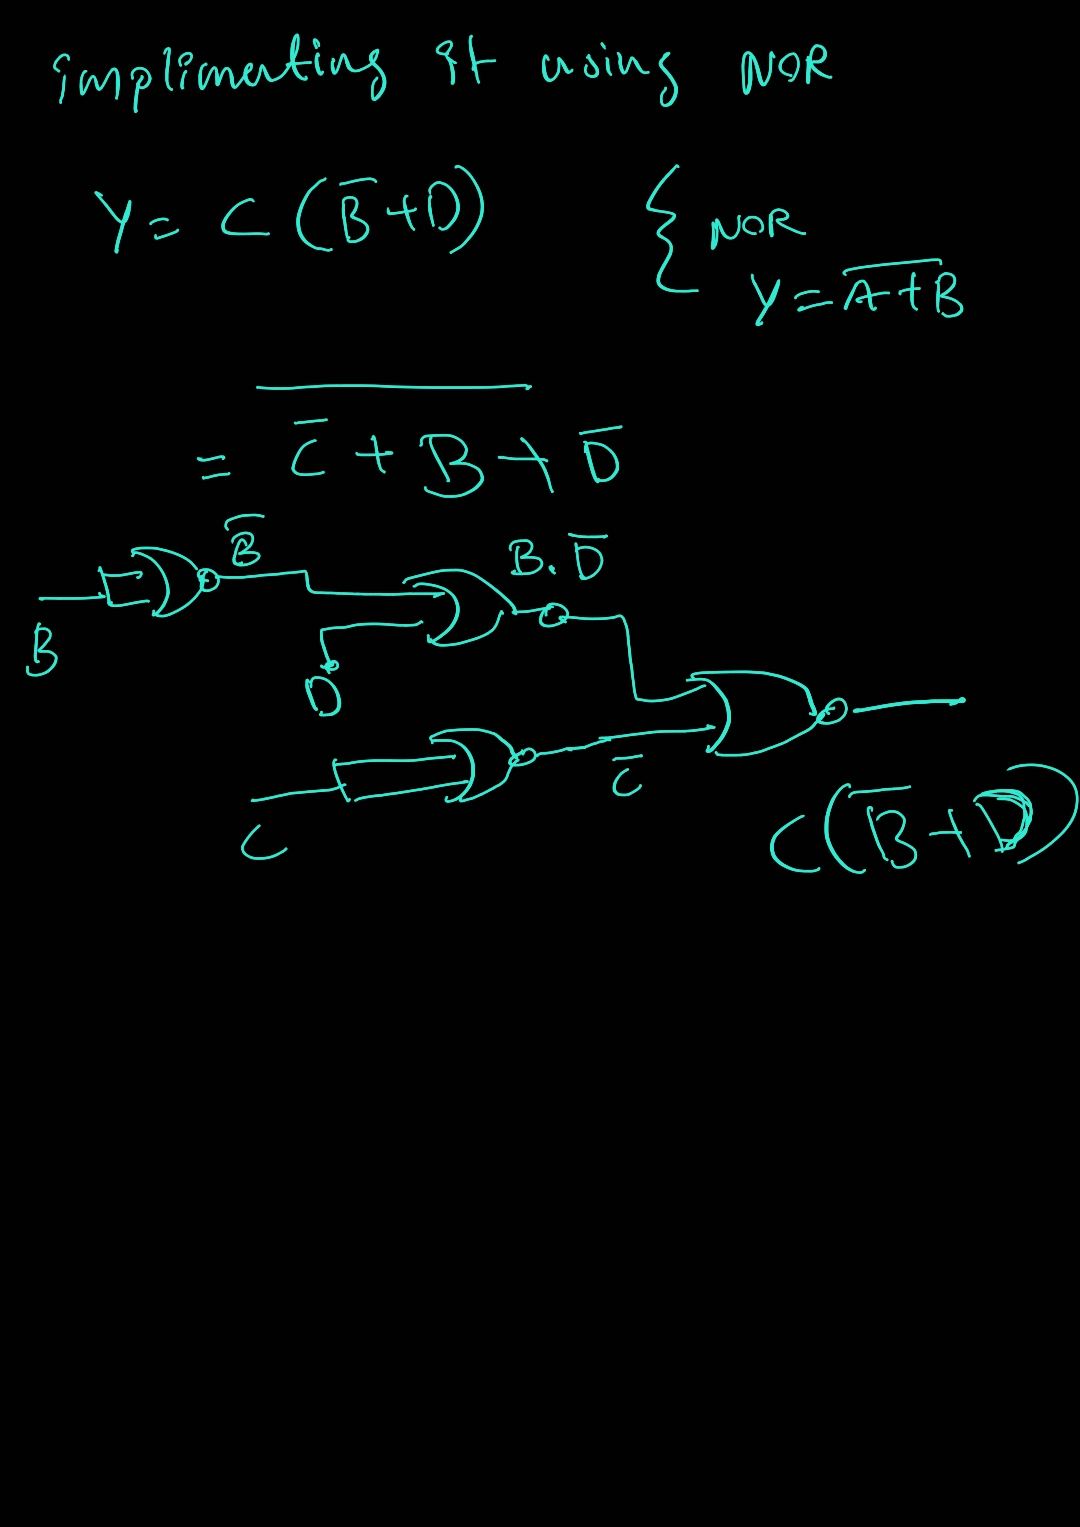 implimenting it using NOR
Y = C (B̅ + D)
{ NOR
Y = A̅+̅B̅
= C̅ + B + D̅
B̅
B. D̅
B
D
C̅
C
C(B̅+D)